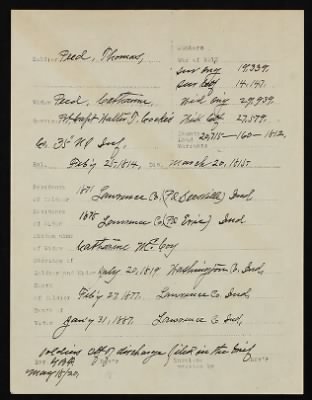 Numbers
Soldier Feed, Thomas,
War of 1812
Sur Orig 19,339.
Sur Ctf 14,147.
Widow Feed, Catharine, Wid Orig 29,939.
Service Pvt Capt Walter J. Cocke's Wid Ctf 27,579.
Bounty Land Warrants 20,715—160—1812,
Co. 35" US Inf,
Enl. Feb'y 25, 1814, Dis. March 20, 1815.
Residence of Soldier 1871 Lawrence Co, (P.O. ) Ind,
Residence of Widow 1878 Lawrence Co (P.O. Erie) Ind
Maiden name of Widow Catharine McCoy
Marriage of Soldier and Widow July 20, 1819 Washington Co. Ind,
Death of Soldier Feb'y 27, 1877. Lawrence Co Ind,
Death of Widow Jan'y 31, 1887. Lawrence Co Ind,
Soldier's ctf of discharge filed in the brief
May 18/20,